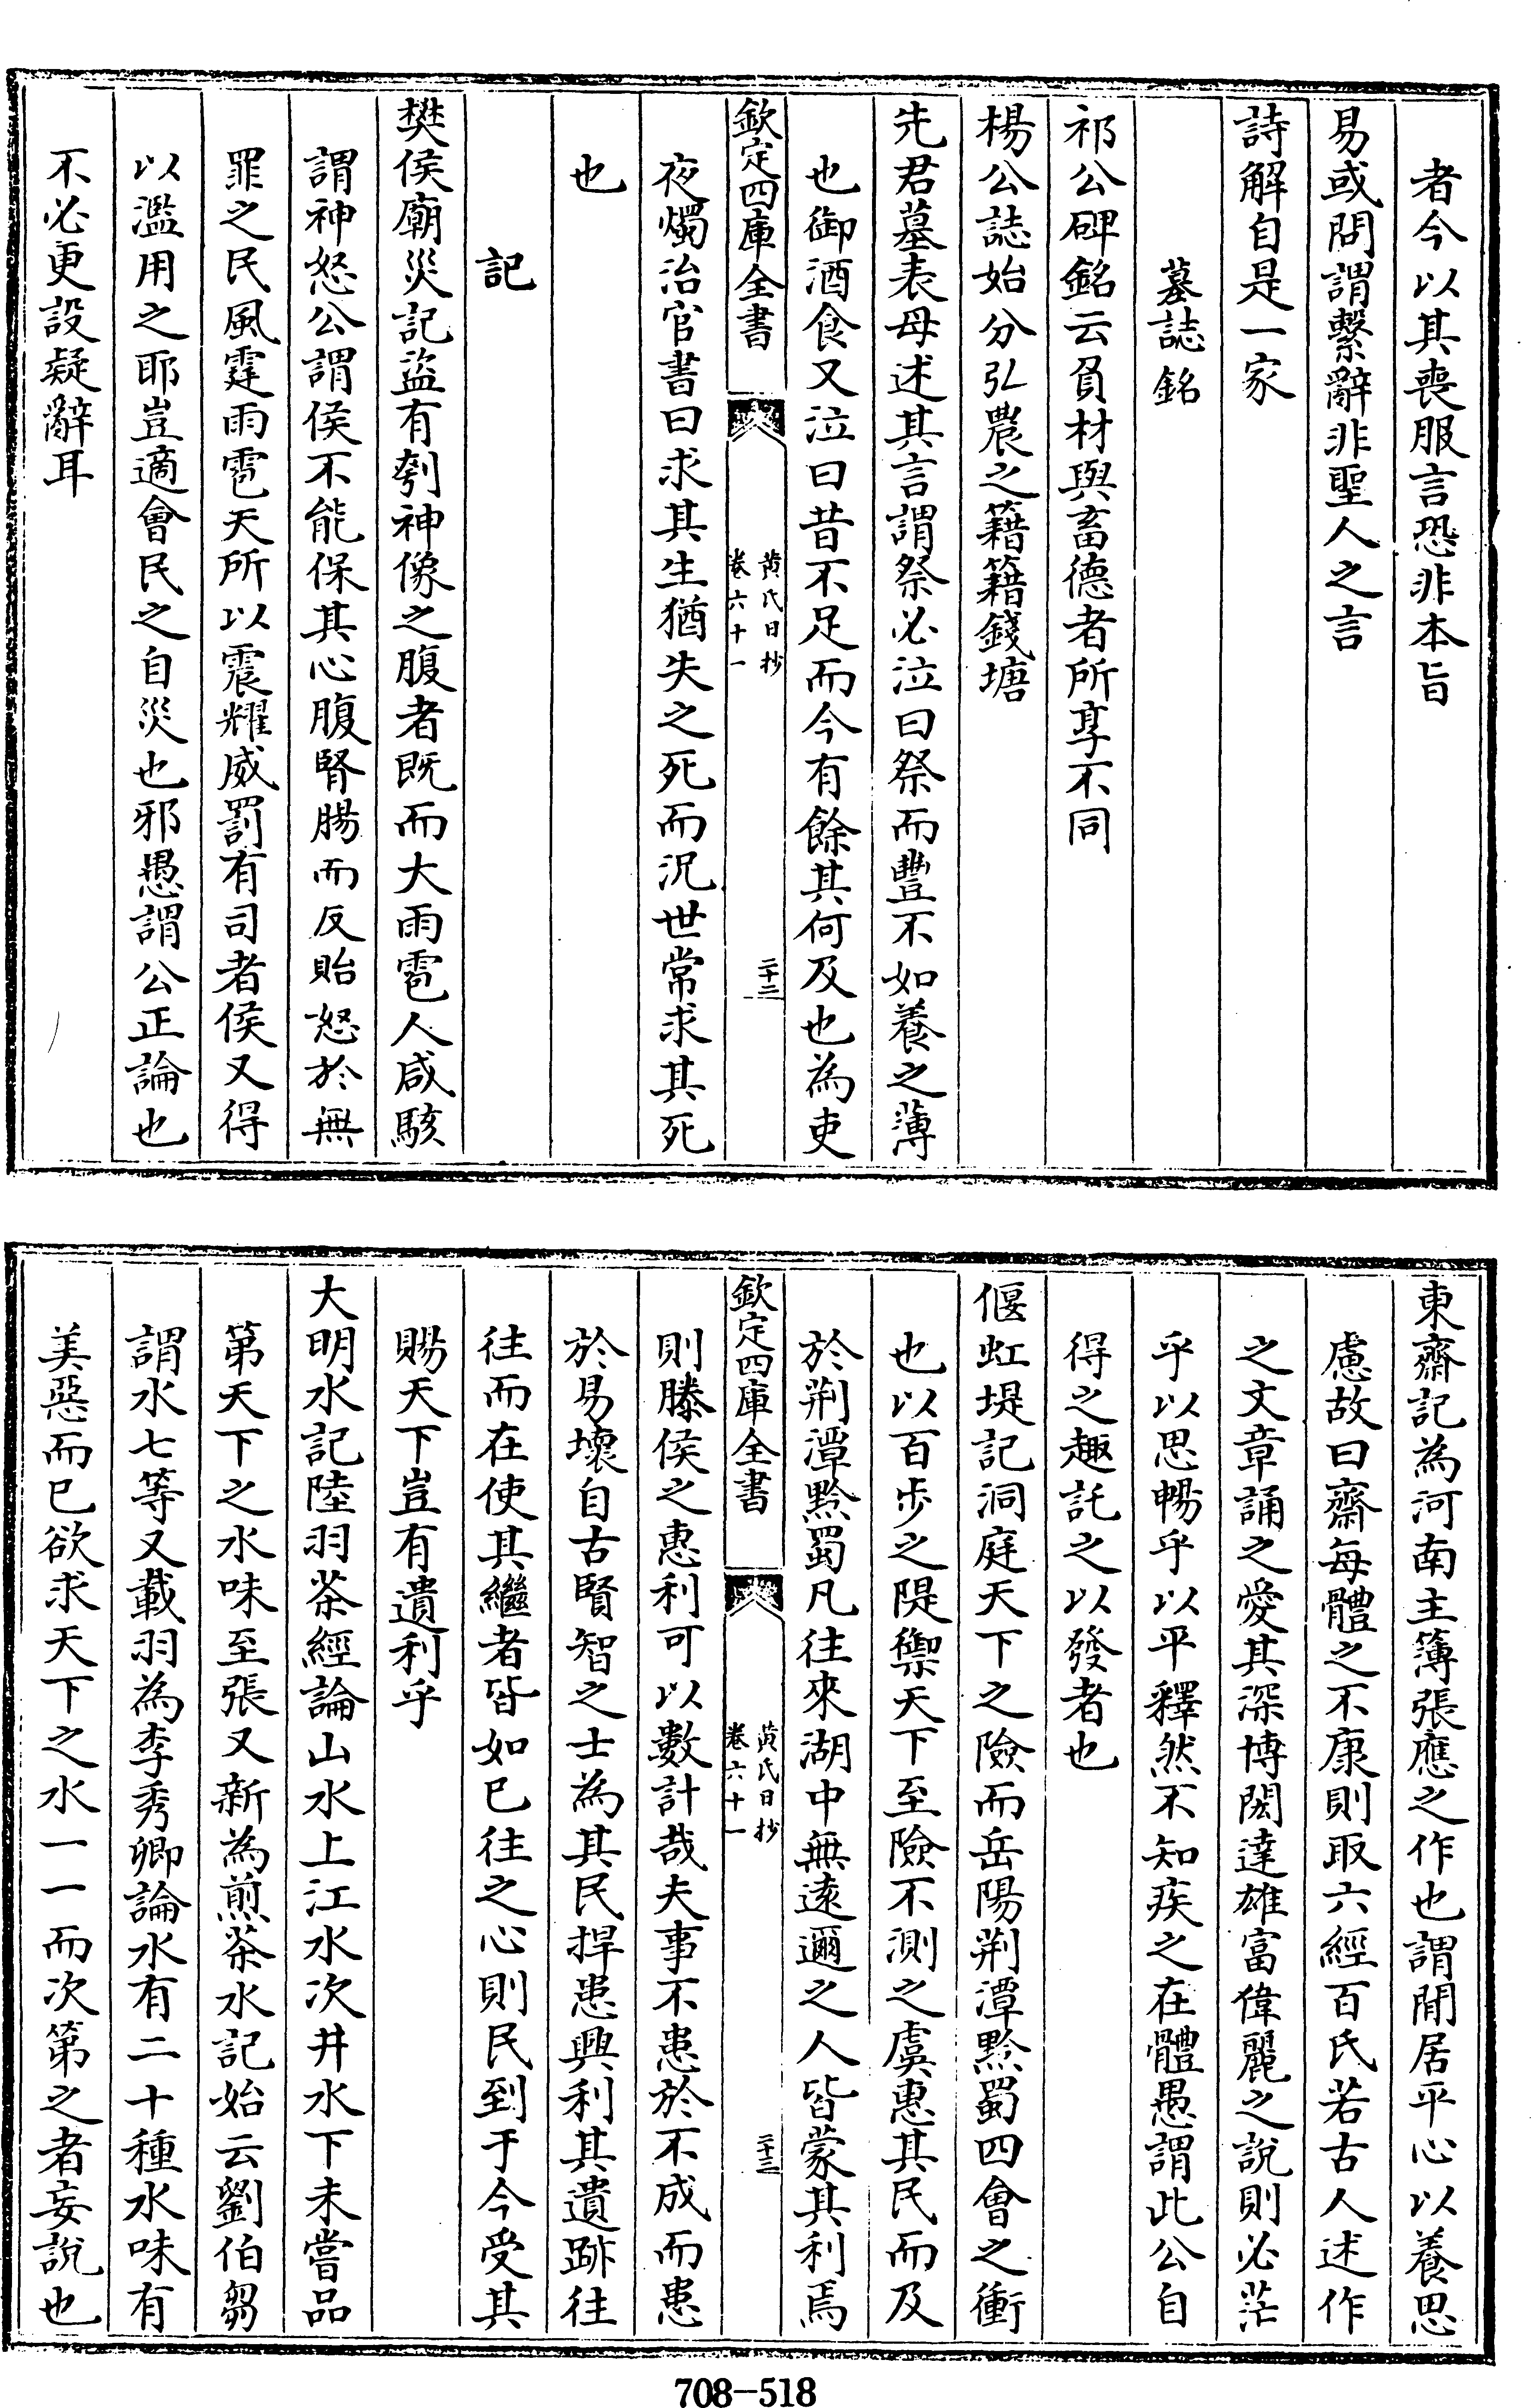 者今以其喪服言恐非本旨
易或問謂繫辭非聖人之言
詩解自是一家
墓誌銘
祁公碑銘云負材與畜德者所享不同
楊公誌始分弘農之籍籍錢塘
先君墓表母述其言謂祭必泣曰祭而豐不如養之薄
也御酒食又泣曰昔不足而今有餘其何及也為吏
欽定四庫全書
黃氏日抄
卷六十一
二十二
夜燭治官書曰求其生猶失之死而況世常求其死
也
記
樊侯廟災記盜有刳神像之腹者既而大雨雹人咸駭
謂神怒公謂侯不能保其心腹腎腸而反貽怒於無
罪之民風霆雨雹天所以震耀威罰有司者侯又得
以濫用之耶豈適會民之自災也邪愚謂公正論也
不必更設疑辭耳
東齋記為河南主簿張應之作也謂閒居平心以養思
慮故曰齋每體之不康則取六經百氏若古人述作
之文章誦之愛其深博閎達雄富偉麗之說則必茫
乎以思暢乎以平釋然不知疾之在體愚謂此公自
得之趣託之以發者也
偃虹堤記洞庭天下之險而岳陽荆潭黔蜀四會之衝
也以百步之隄禦天下至險不測之虞惠其民而及
於荆潭黔蜀凡往來湖中無遠邇之人皆蒙其利焉
欽定四庫全書
黃氏日抄
卷六十一
二十三
則滕侯之惠利可以數計哉夫事不患於不成而患
於易壞自古賢智之士為其民捍患興利其遺跡往
往而在使其繼者皆如已往之心則民到于今受其
賜天下豈有遺利乎
大明水記陸羽茶經論山水上江水次井水下未嘗品
第天下之水味至張又新為煎茶水記始云劉伯芻
謂水七等又載羽為李秀卿論水有二十種水味有
美惡而已欲求天下之水一一而次第之者妄說也
708-518